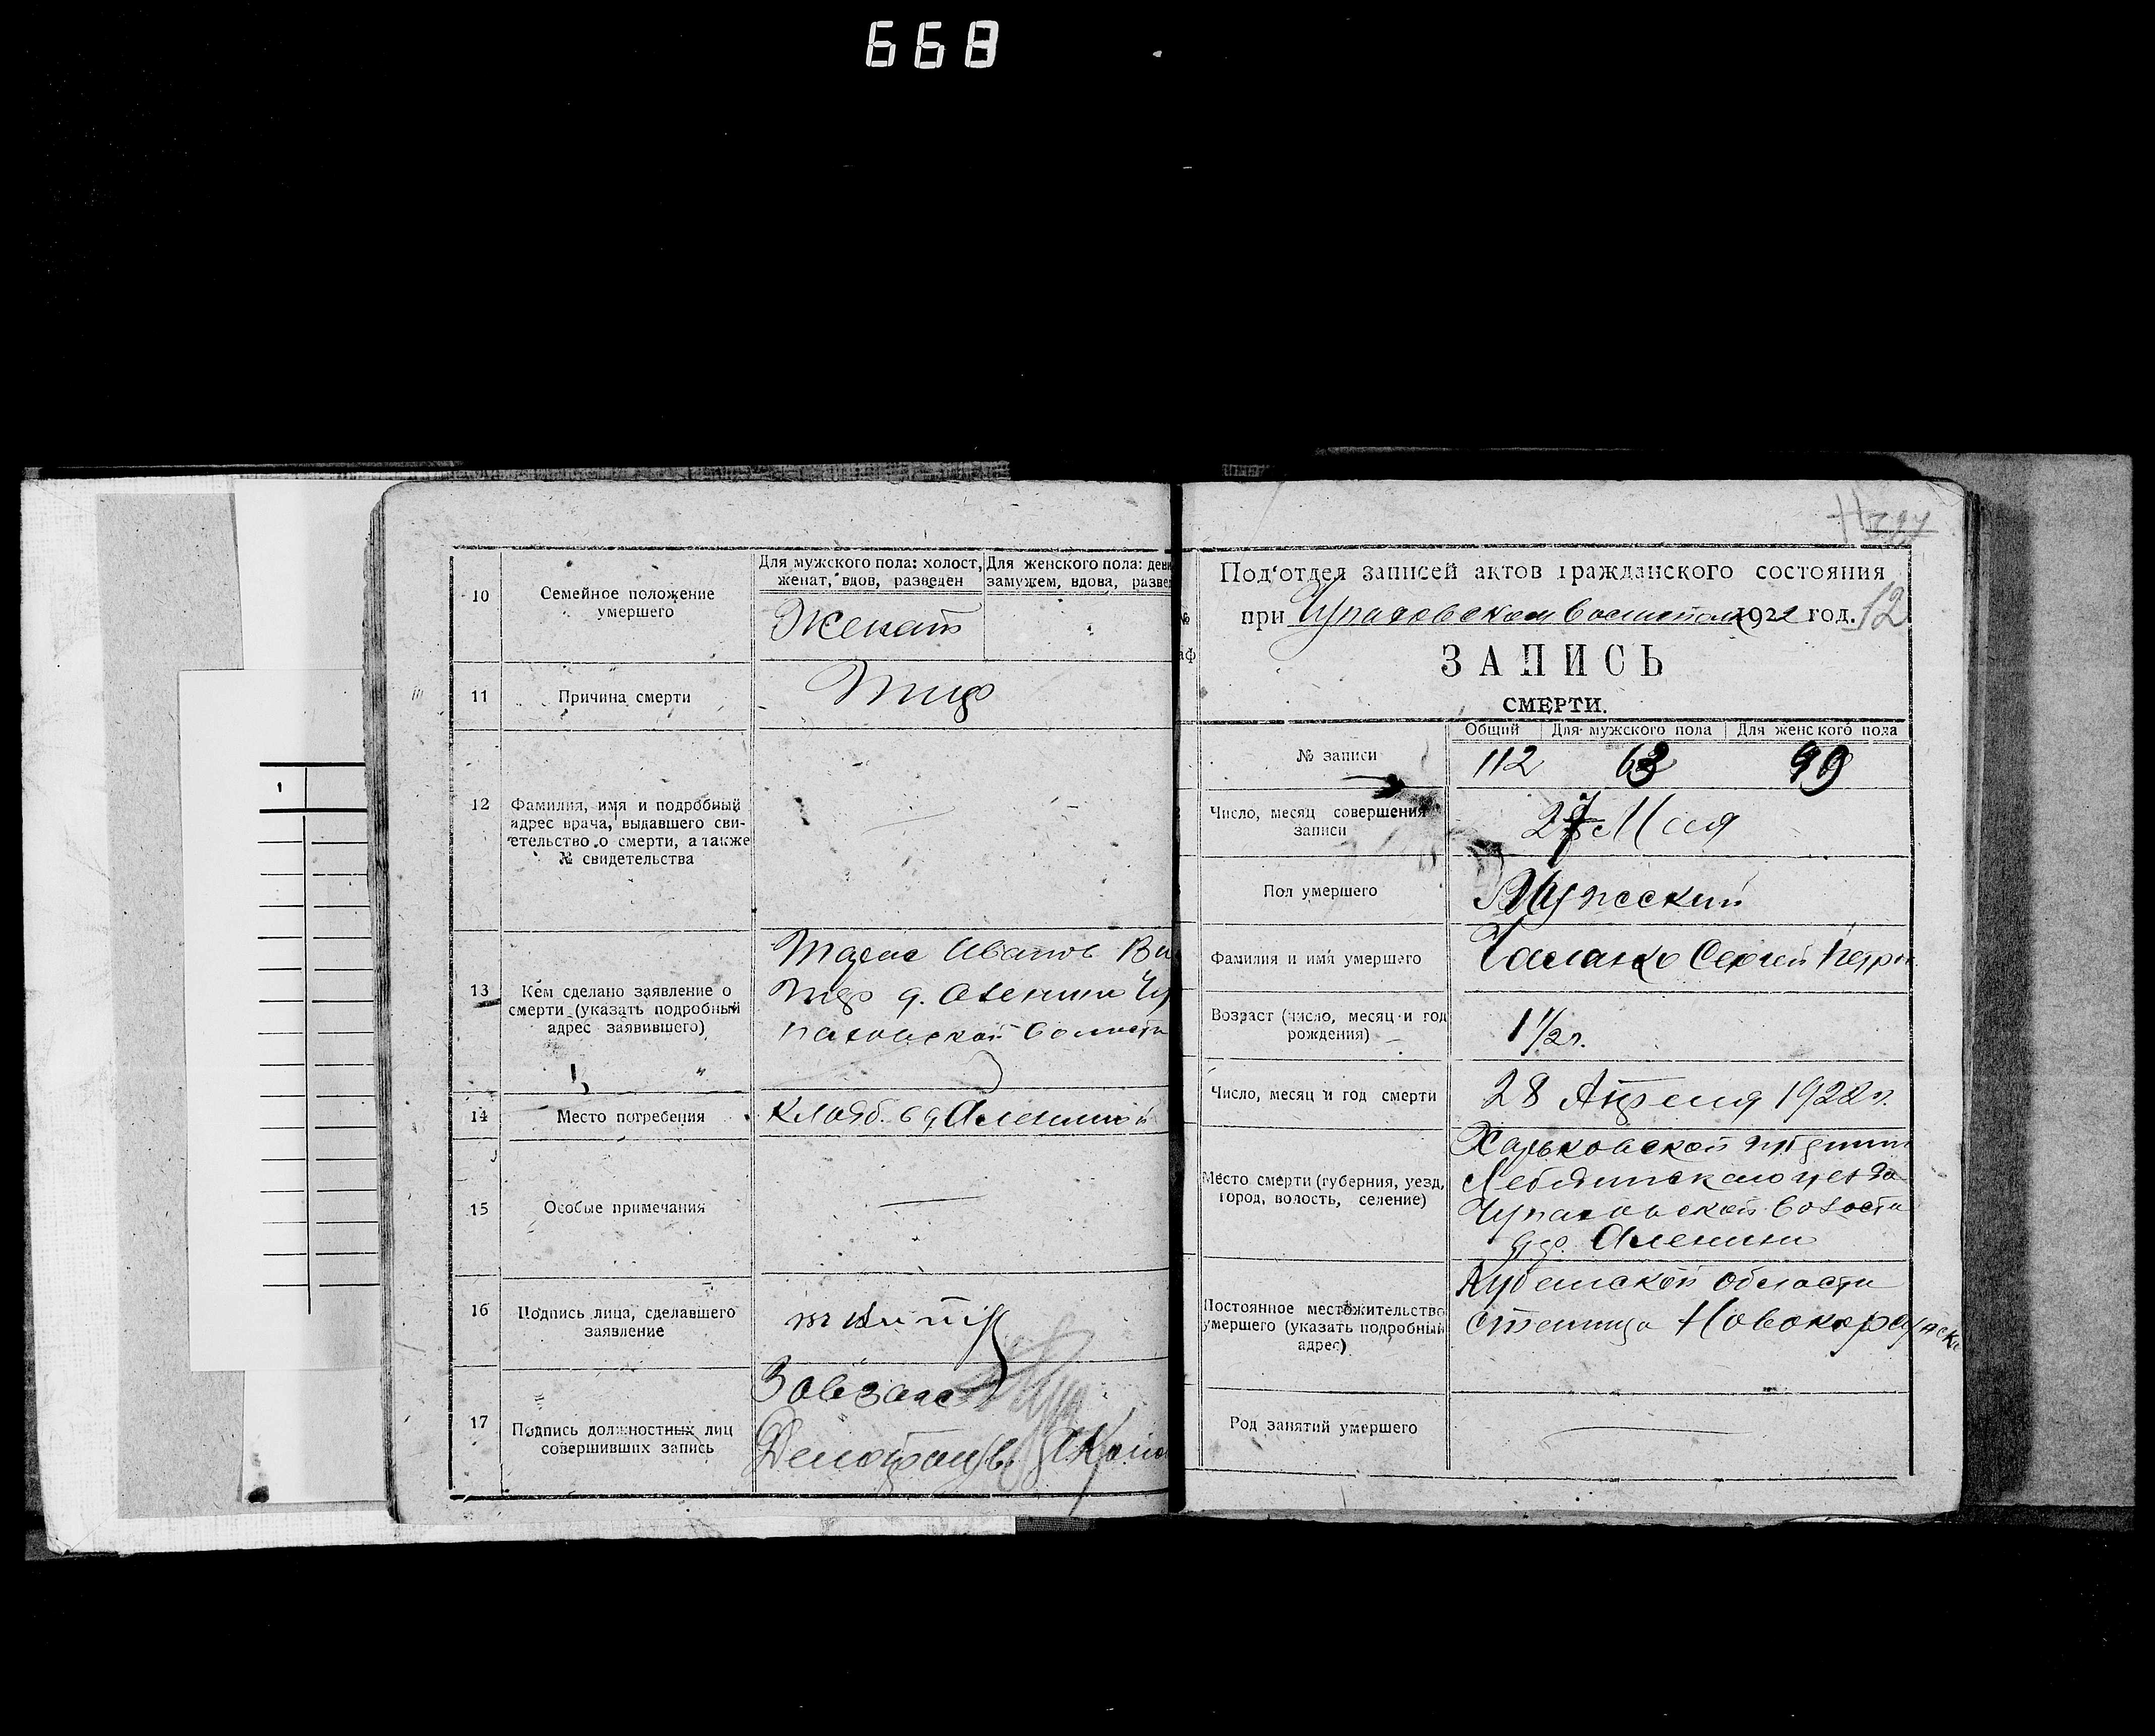 668
10
Семейное положение
умершего
Для мужского пола: холост,
женат, вдов, разведен
Для женского пола: деви
замужем, вдова, разве
Женат
11
Причина смерти
Тиф
12
Фамилия, имя и подробный
адрес врача, выдавшего сви-
етельство о смерти, а также
№ свидетельства
13
Кем сделано заявление о
смерти (указать подробный
адрес заявившего)
Иванов
д. Аленино Чу
паховской волости
14
Место погребения
кладб. в д Алениной
15
Особые примечания
16
Подпись лица, сделавшего
заявление
17
Подпись должностных лиц
совершивших запись
Завзагс
12
Под'отдел записей актов гражданского состояния
при Чупаховском волисполк 1922 год.
ЗАПИСЬ
СМЕРТИ.
№ записи
Общий
Для мужского пола
Для женского пола
112
63
Число, месяц совершения
записи
27 Мая
Пол умершего
Мужеский
Фамилия и имя умершего
Сергей Петров
Возраст (число, месяц и год
рождения)
1 1/2 г.
Число, месяц и год смерти
28 Апреля 1922 г.
Место смерти (губерния, уезд,
город, волость, селение)
Харьковской губернии
Лебединского уезда
Чупаховской волости
дер. Аленино
Постоянное местожительство
умершего (указать подробный
адрес)
Кубанской области
станица
Род занятий умершего